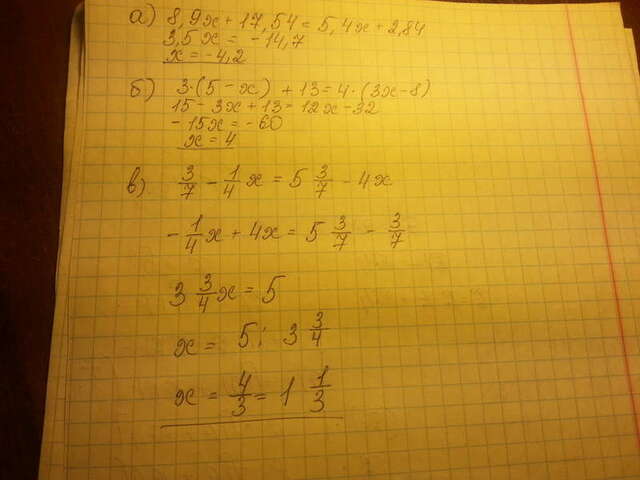 а) 8,9x + 17,54 = 5,4x + 2,84
3,5x = -14,7
x = -4,2
б) 3·(5 - x) + 13 = 4·(3x - 8)
15 - 3x + 13 = 12x - 32
- 15x = - 60
x = 4
в) 3/7 - 1/4 x = 5 3/7 - 4x
- 1/4 x + 4x = 5 3/7 - 3/7
3 3/4 x = 5
x = 5 : 3 3/4
x = 4/3 = 1 1/3